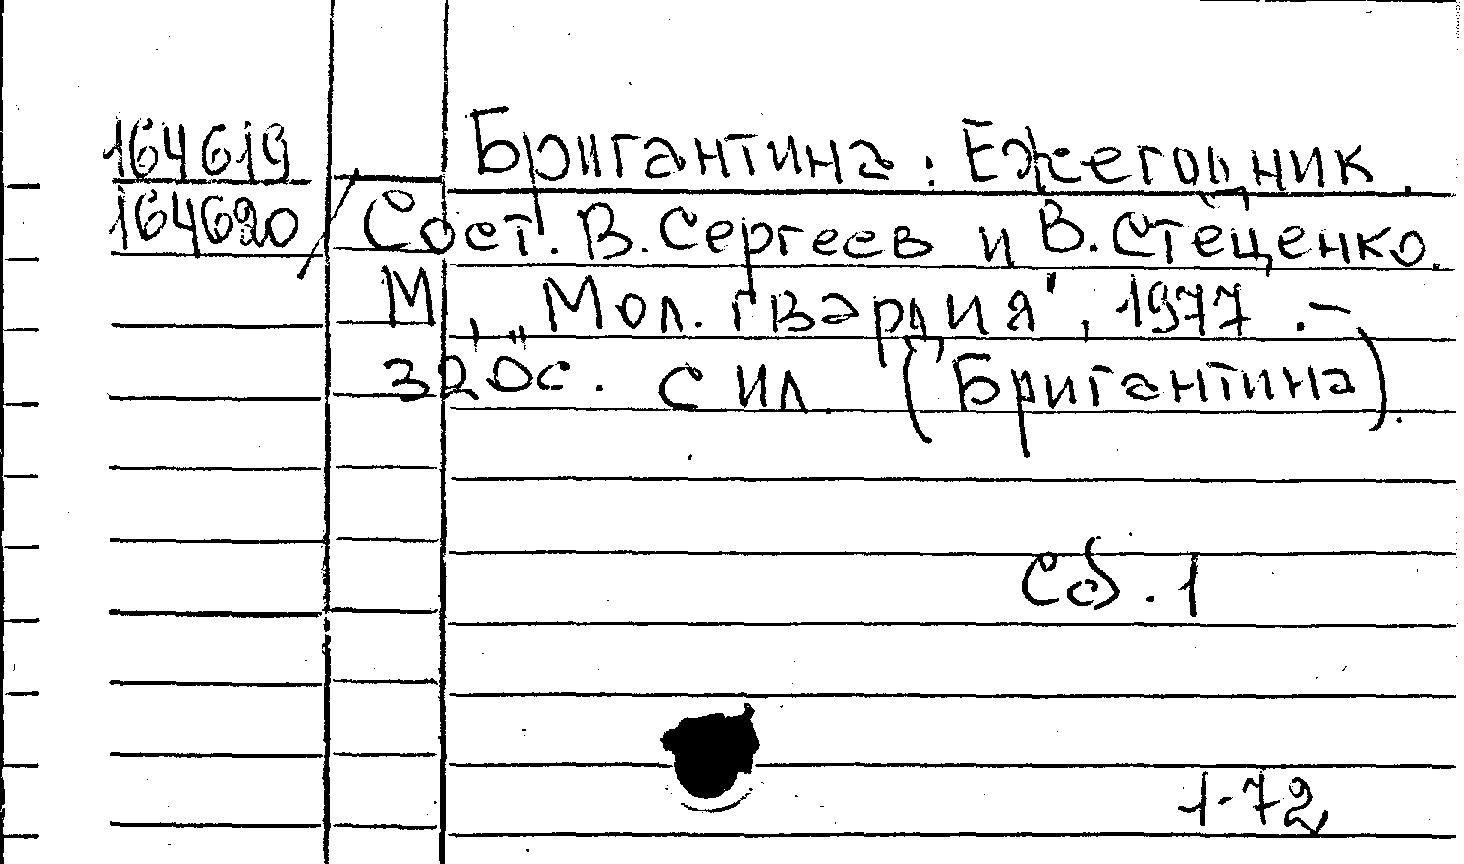 164619 Бригантина: Ежегодник.
164620/ Сост. В. Сергеев и В. Стеценко.
М., „Мол. гвардия", 1977. –
320с. с ил. (Бригантина).
Сб. 1
1-72